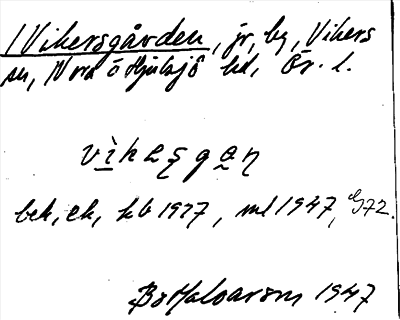 Vikersgården, jr, by, Vikers
sn, Nora ö Hjulsjö bd, Ör. l.
vìkesgan
bek, ek, kb 1927, ml 1947, G72.
Bo Halvarson 1947